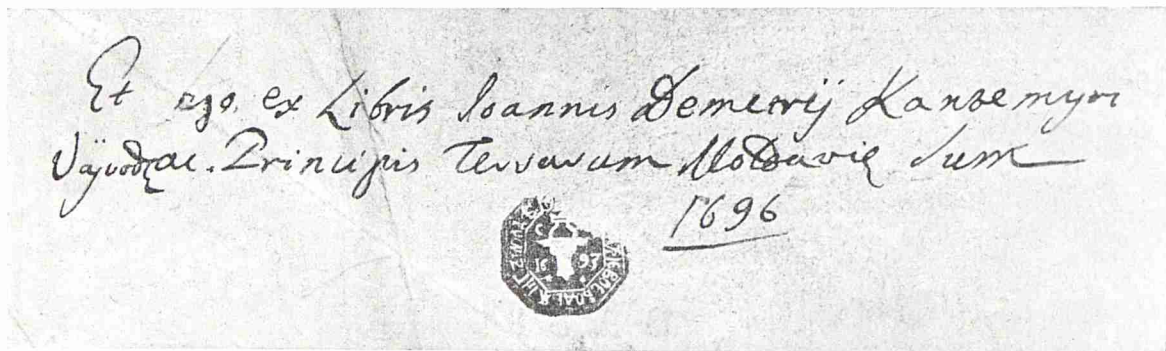 Et ego ex Libris Ioannis Demetrij Kantemyri
Väÿvodzae. Principis Terrarum Moldavię sum
1696
16 93